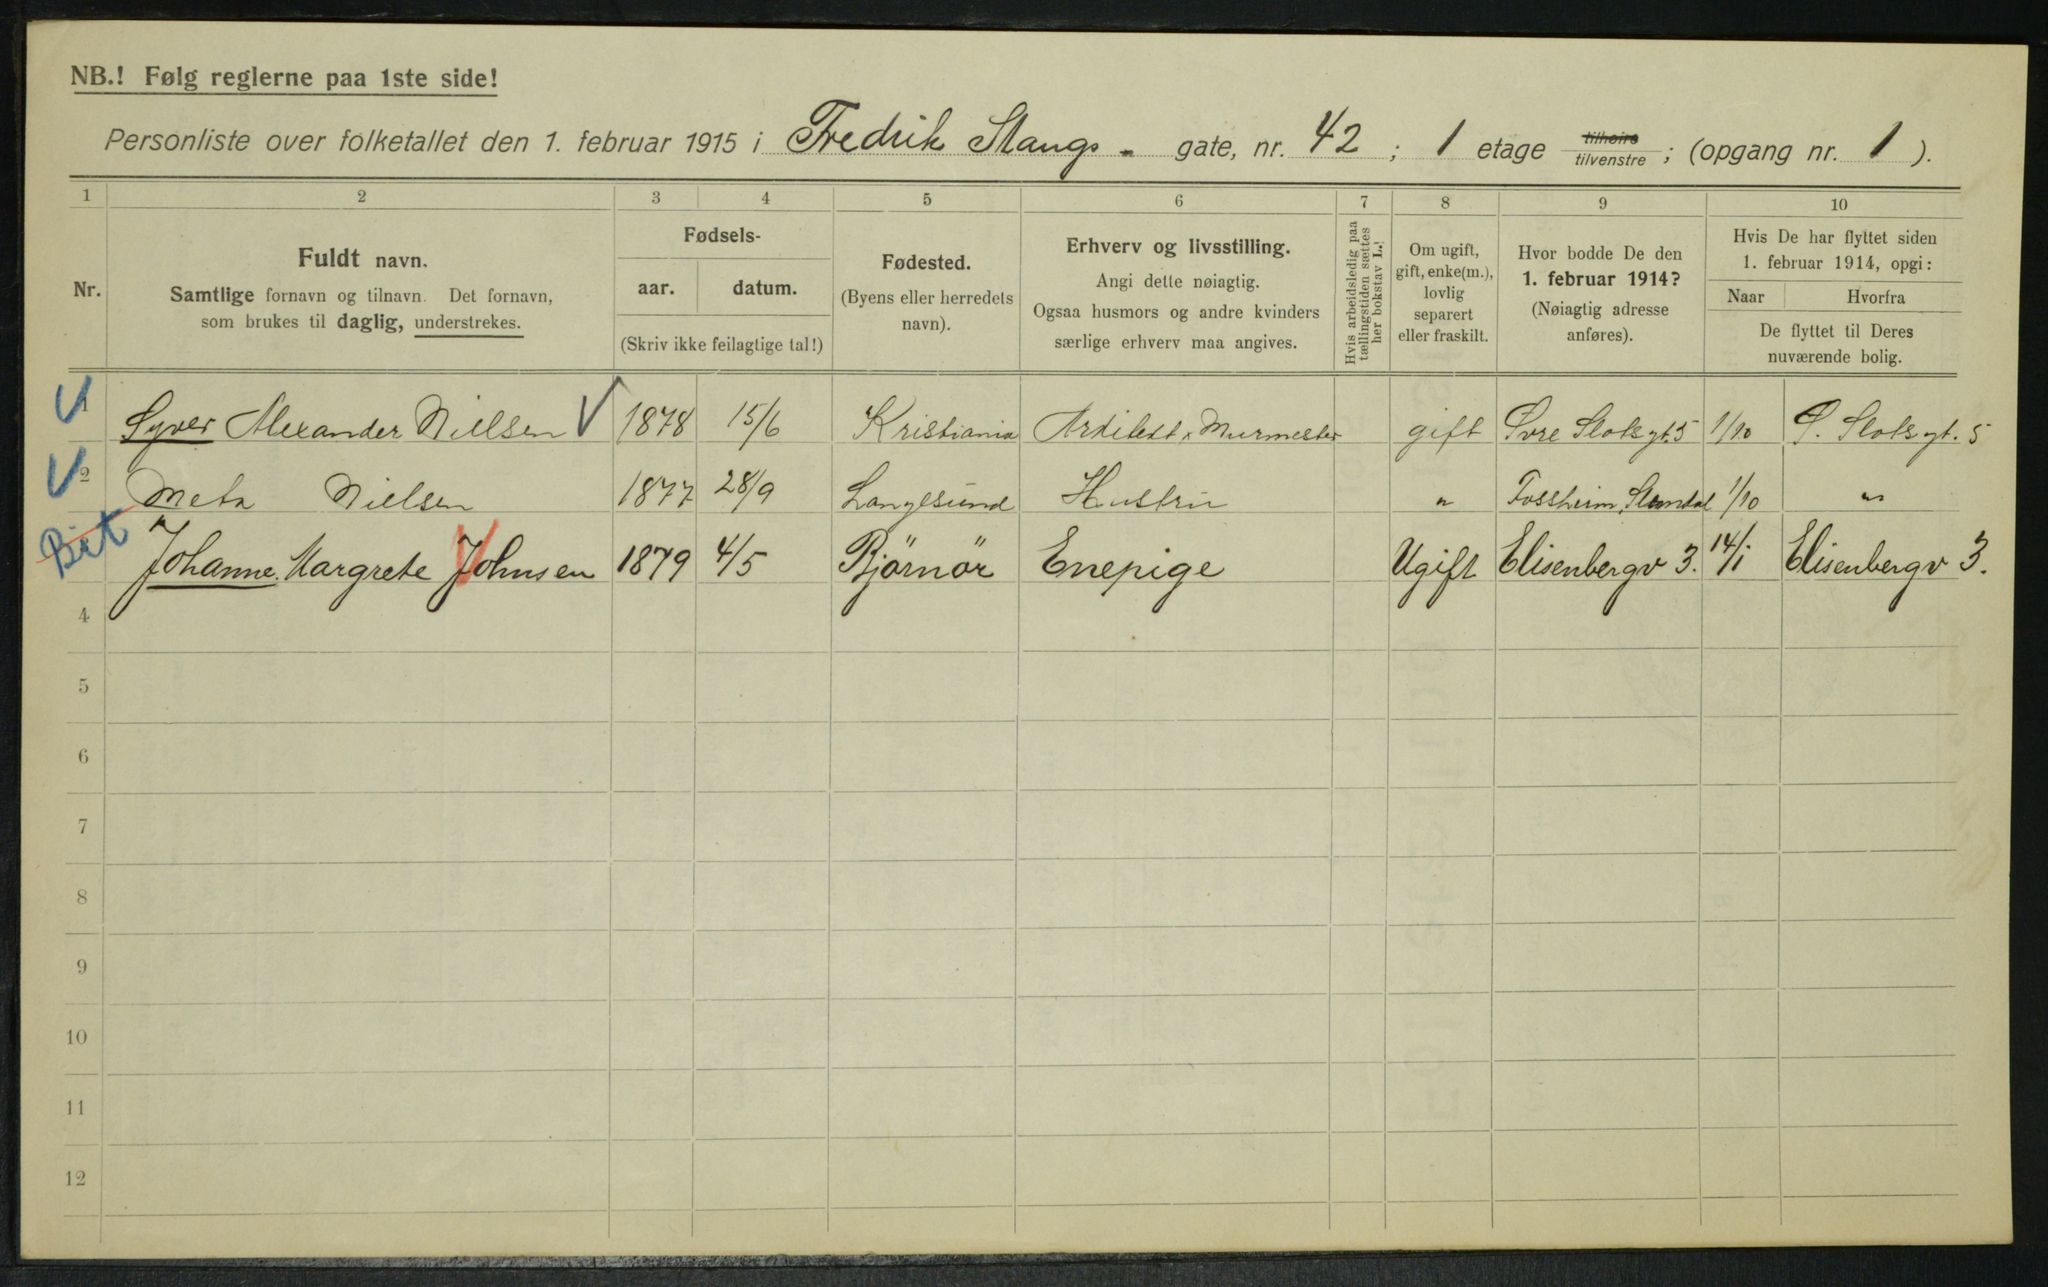 NB.! Følg reglerne paa 1ste side!
Personliste over folketallet den 1. februar 1915 i Fredrik Stangs - gate, nr. 42 ; 1 etage tilhøire tilvenstre ; (opgang nr. 1 ).
1 2 3 4 5 6 7 8 9 10
Nr.
Fuldt navn.
Samtlige fornavn og tilnavn. Det fornavn,
som brukes til daglig, understrekes.
Fødsels-
aar. datum.
(Skriv ikke feilagtige tal!)
Fødested.
(Byens eller herredets
navn).
Erhverv og livsstilling.
Angi dette nøiagtig.
Ogsaa husmors og andre kvinders
særlige erhverv maa angives.
Hvis arbeidsledig paa
tællingstiden sættes
her bokstav L.!
Om ugift,
gift, enke(m.),
lovlig
separert
eller fraskilt.
Hvor bodde De den
1. februar 1914?
(Nøiagtig adresse
anføres).
Hvis De har flyttet siden
1. februar 1914, opgi:
Naar Hvorfra
De flyttet til Deres
nuværende bolig.
1 Syver Alexander Nielsen 1878 15/6 Kristiania Arkitekt & Murmester gift Øvre Slotsgt. 5 1/10 Ø. Slotsgt. 5
2 Meta Nielsen 1877 28/9 Langesund Hustru " Fossheim, Slemdal 1/10 "
Bet Johanne Margrete Johnsen 1879 4/5 Bjørnør Enepige Ugift Elisenbergv 3. 14/1 Elisenbergv 3.
4
5
6
7
8
9
10
11
12